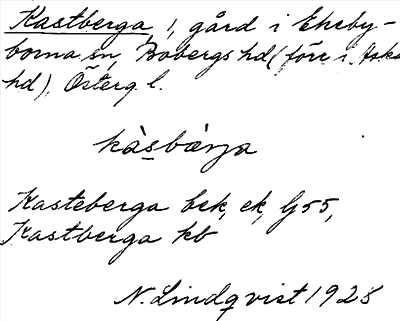 Kastberga, 1, gård i Ekeby-
borna sn, Bobergs hd (förr i Aska
hd), Österg. l.
kàsbærja
Kasteberga bek, ek, G55,
Kastberga kb
N. Lindqvist 1925